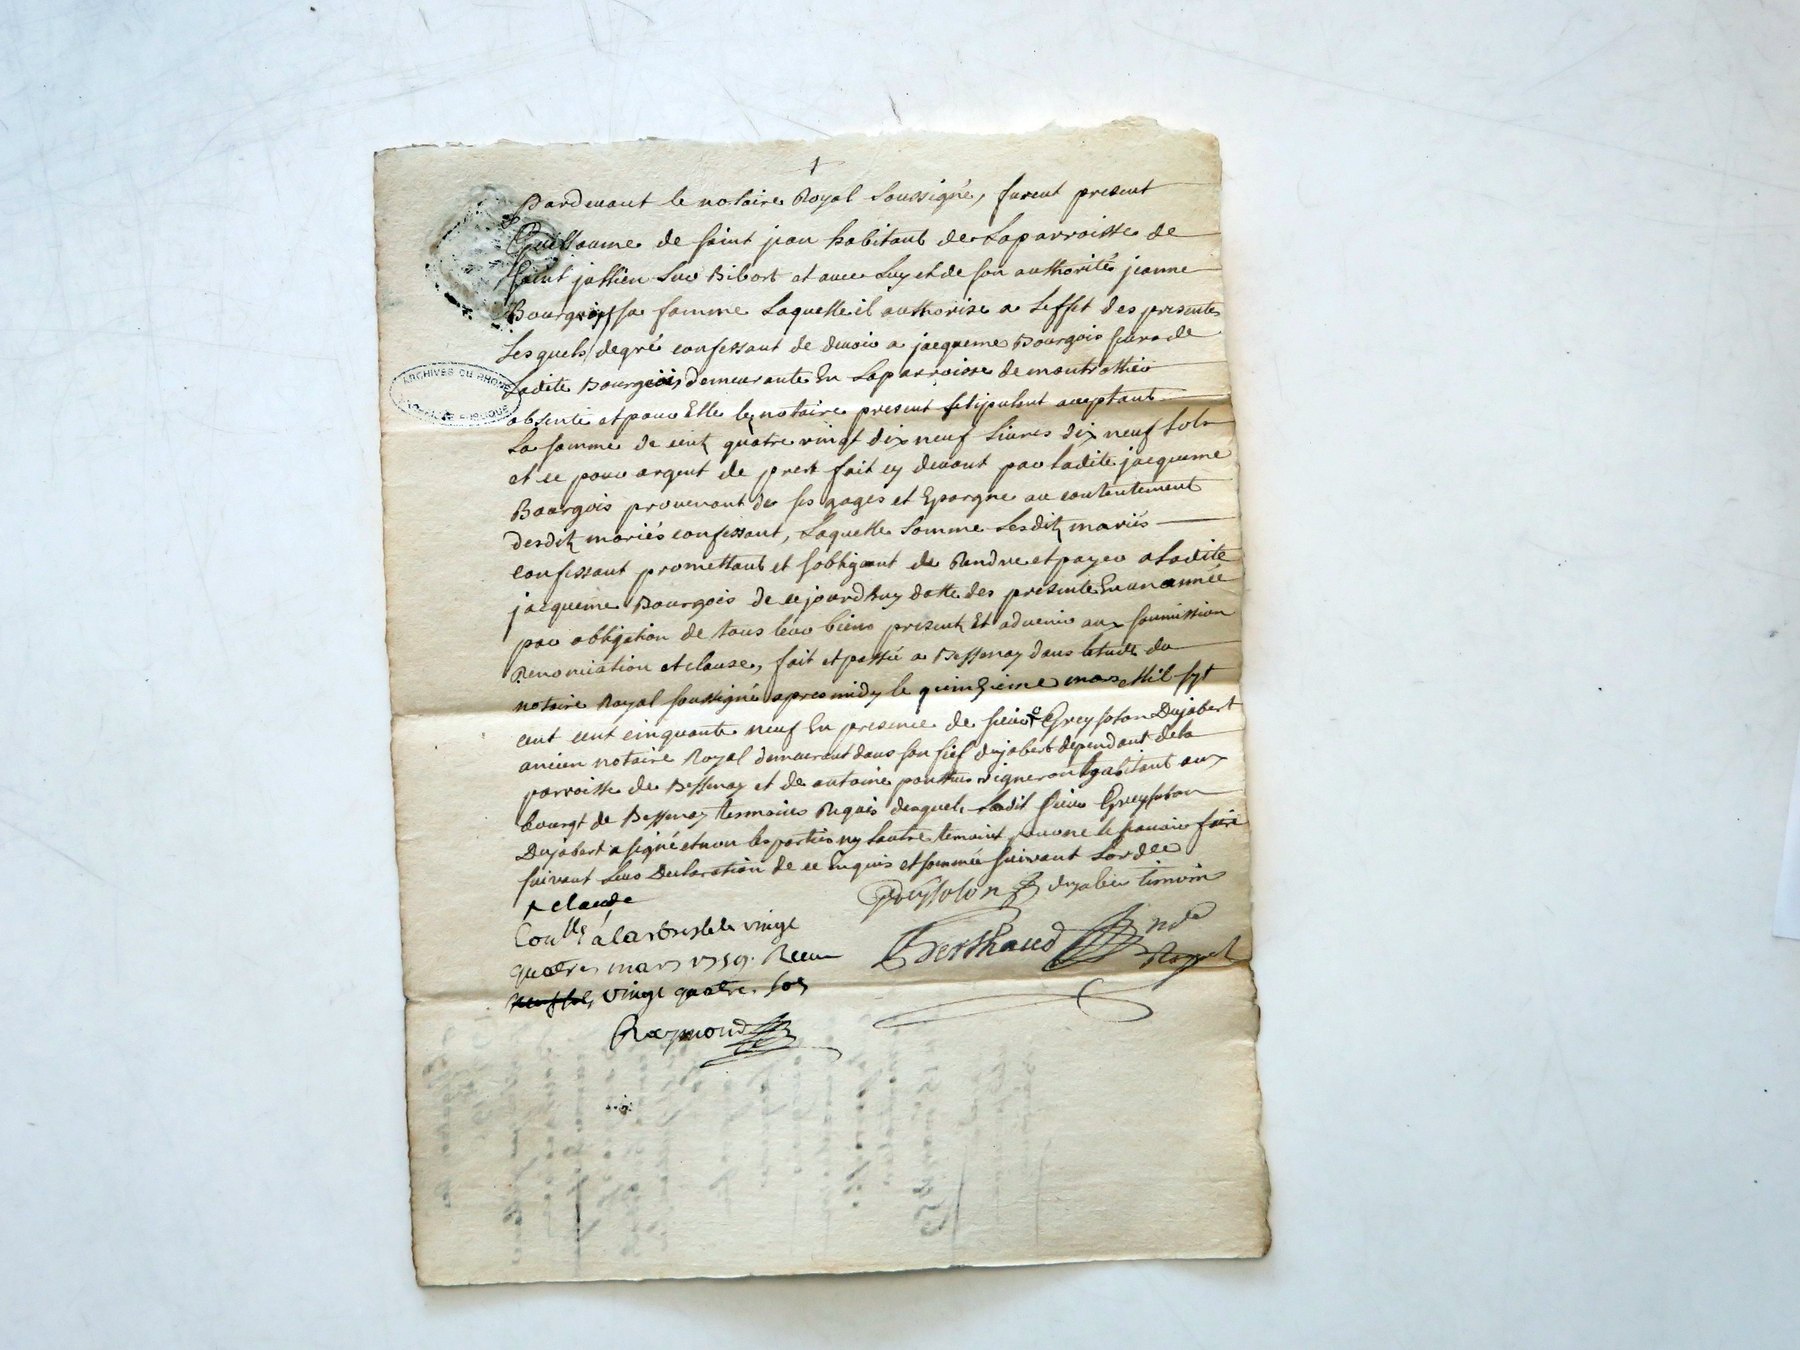 Pardevant le notaire Royal Soussigné, furent present
Guillaume de saint jean habitant de Laparroisse de
saint jullien Sur Bibort et avec Luy et de son authorité jeanne
Bourgois sa famme Laquelle il authorise a Leffet des presentes
Lesquels degré confessant de devoir a jacqueme Bourgois sœur de
Ladite Bourgeois demeurante En Laparroisse de montrottier
absente et pour Elle le notaire present stipulant aceptant
La somme de cent quatre vingt dix neuf Livres dix neuf Sols
et ce pour argent de prest fait cy devant par ladite jacqueme
Bourgois provenant de ses gages et Epargne au contentement
desdits mariés confessant, Laquelle Somme Lesdits mariés
confessant promettant et sobligant de Randre et payer a Ladite
jacqueme Bourgois de cejourdhuy datte des presente En un année
par obligation de tous leur biens present Et advenir aux soumission
Renonciation et clause, fait et passé a Bessenay dans letude du
notaire Royal soussigné apres midy le quinzieme mars Mil sept
cent cent cinquante neuf En presence de sieur Greysolon Dujabert
ancien notaire Royal demeurant dans son fief dujabert dependant dela
parroisse de Bessenay et de antoine vigneron habitant aux
bourgt de Bessenay temoins Requis desquels Ledit sieur Greysolon
Dujabert a signé et non les parties ny lautre temoint pour ne le scavoir faire
suivant Leur Declaration de ce Enquis et sommée suivant Lordce
+ claude
Conllé à la vingt
quatre mars 1759. Recu
neuf sols vingt quatre sols
Greysolon temoin
Berthaud nre
Royal
Raymond
ARCHIVES DU RHONE